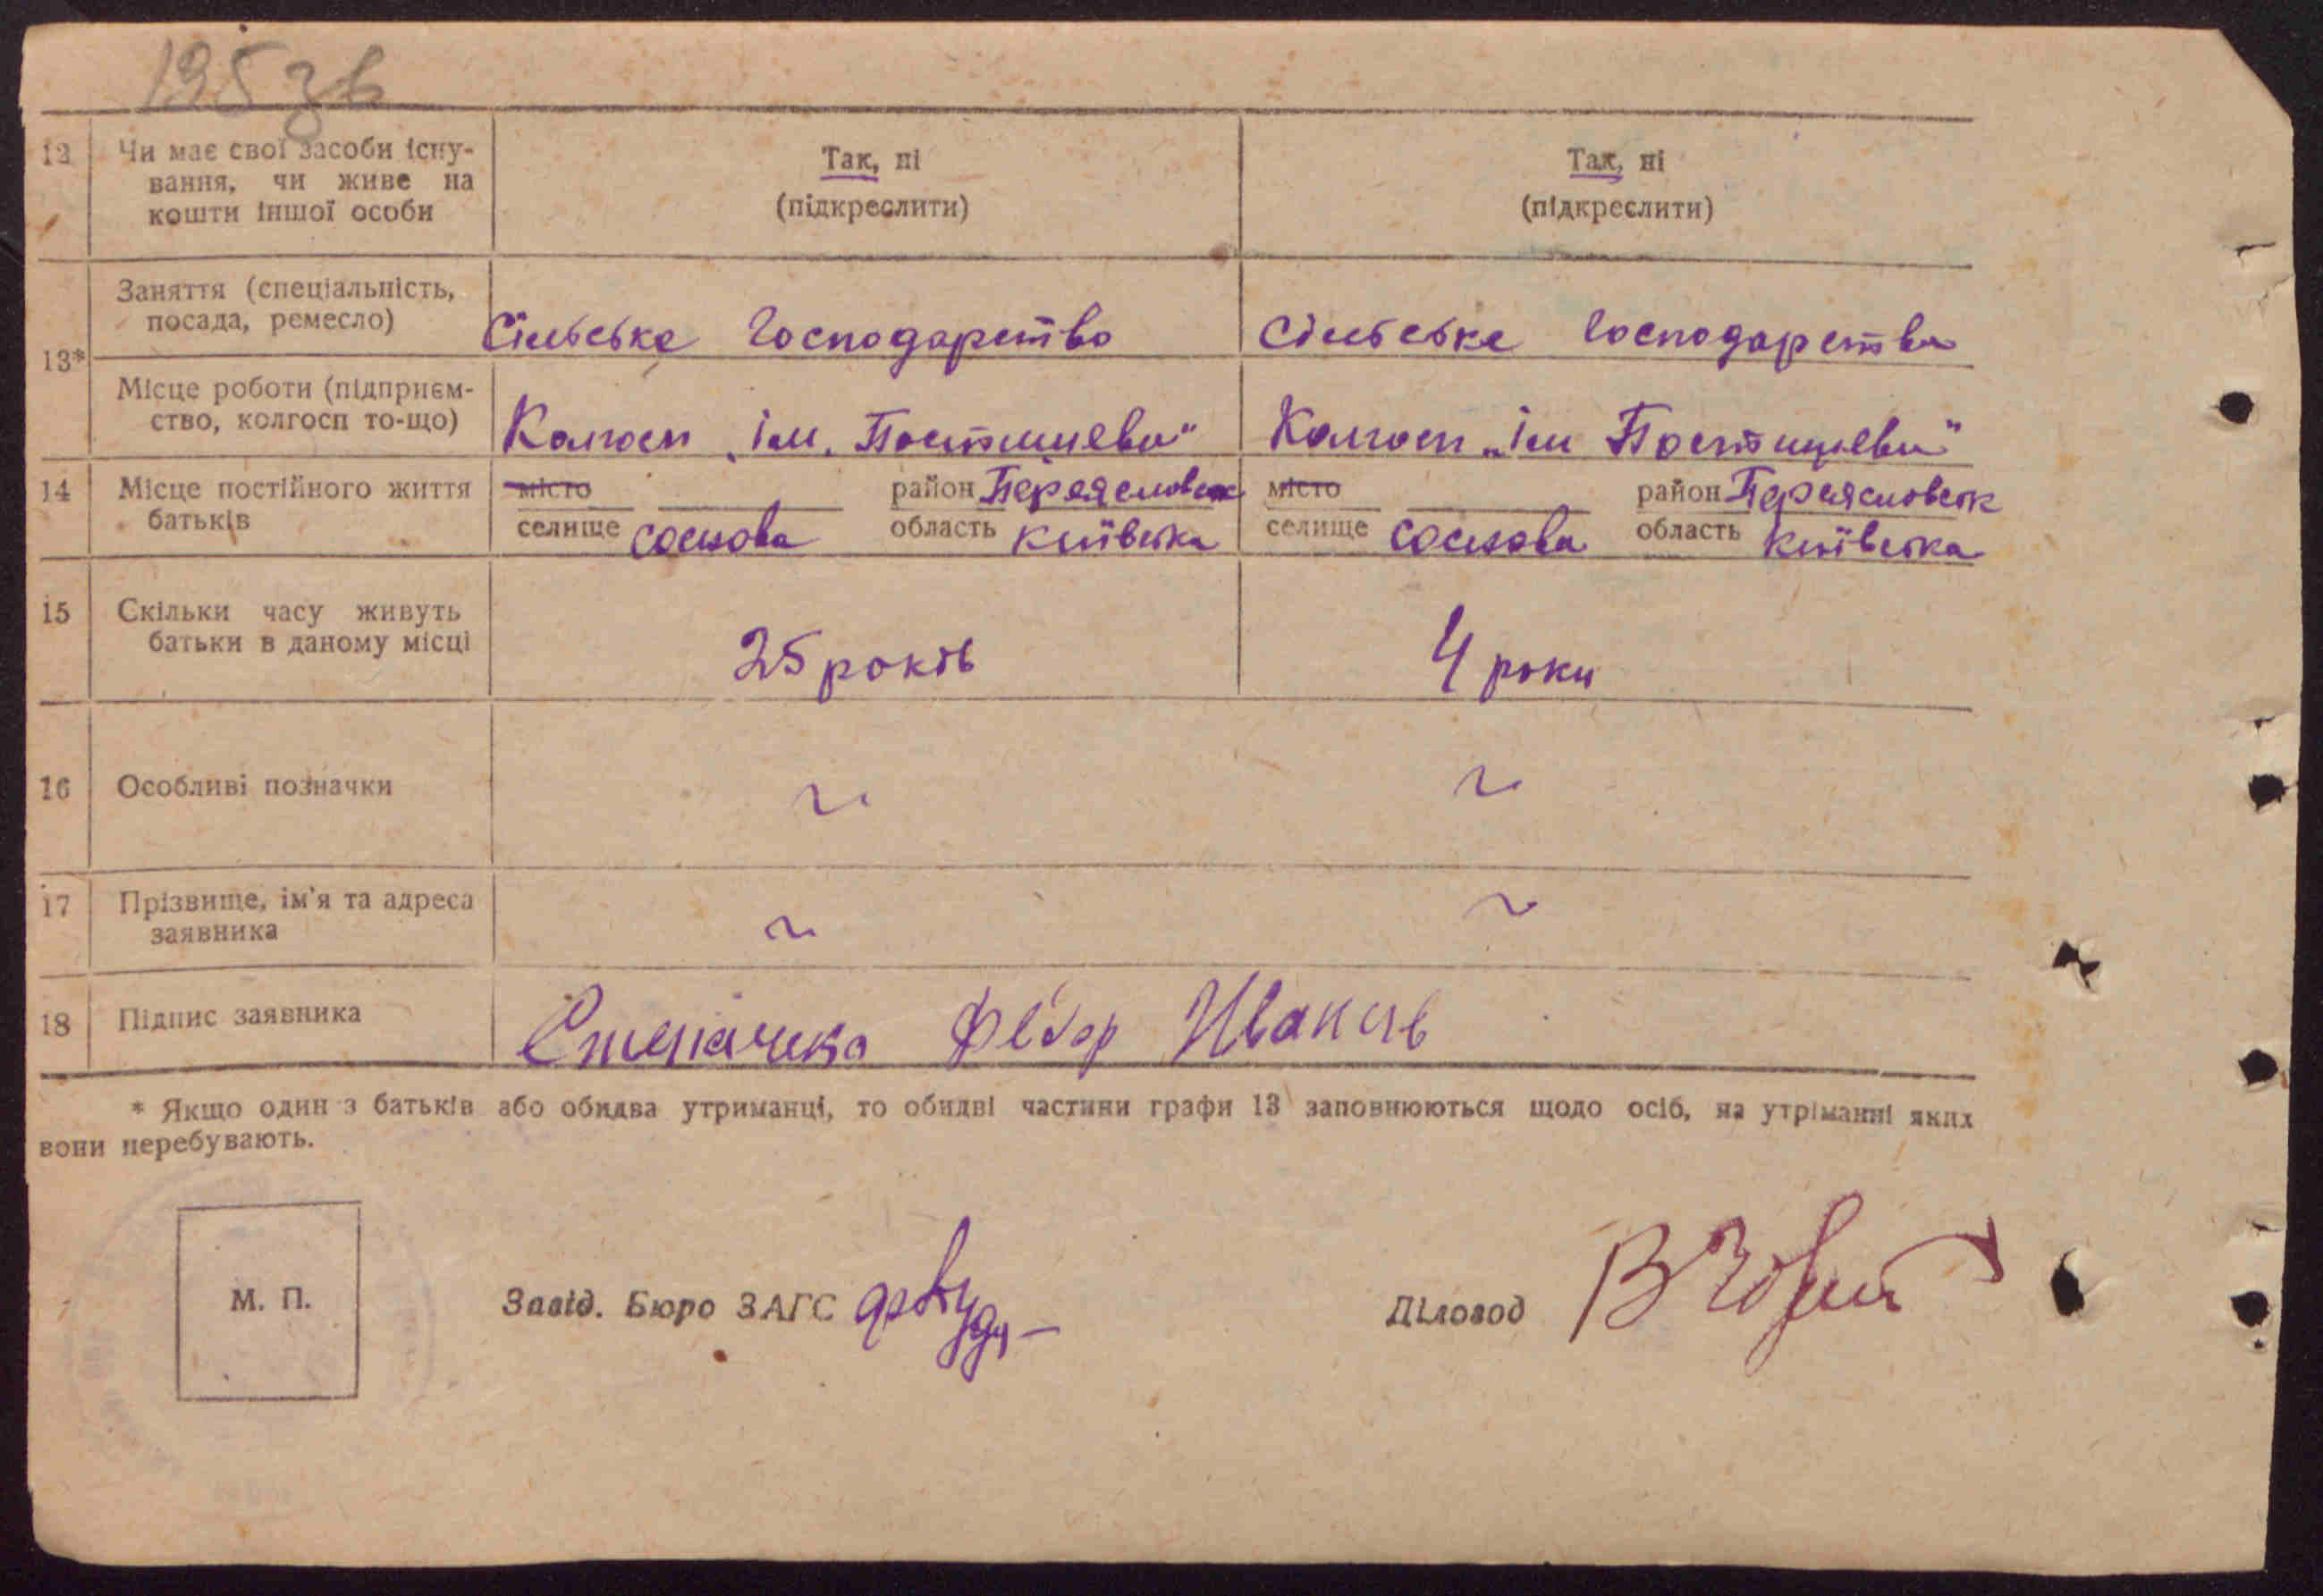 195 зв
12 Чи має свої засоби існу-
вання, чи живе на
кошти іншої особи
Так, ні
(підкреслити)
Так, ні
(підкреслити)
13*
Заняття (спеціальність,
посада, ремесло)
Сільське Господарство
Сільське Господарство
Місце роботи (підприєм-
ство, колгосп то-що)
Колгосп „ім. Постишева"
Колгосп „ім Постишева"
14 Місце постійного життя
батьків
місто район Переяславськ
селище соснова область київська
місто район Переяславськ
селище соснова область київська
15 Скільки часу живуть
батьки в даному місці
25 років
4 роки
16 Особливі позначки
17 Прізвище, ім'я та адреса
заявника
18 Підпис заявника
Федор
* Якщо один з батьків або обидва утриманці, то обидві частини графи 13 заповнюються щодо осіб, на утріманні яких
вони перебувають.
М. П.
Завід. Бюро ЗАГС
Діловод